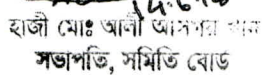 হাজী মোঃ আলী আসগর খান
সভাপতি, সমিতি বোর্ড